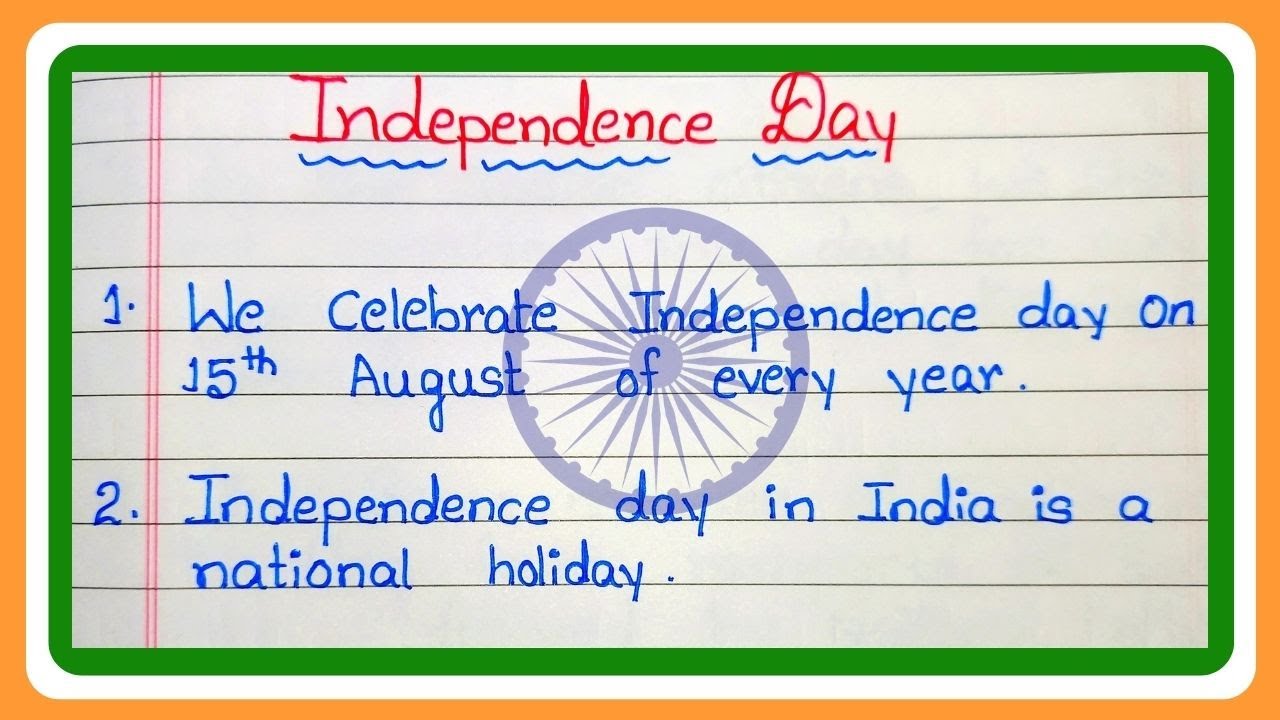 Independence Day
1. We Celebrate Independence day On
15th August of every year.
2. Independence day in India is a
national holiday.